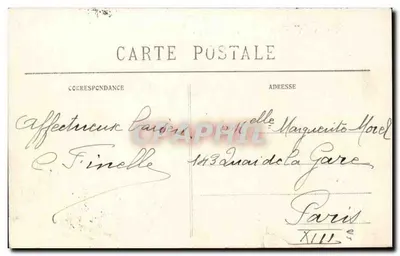 CARTE POSTALE
CORRESPONDANCE
ADRESSE
Affectueux baisers
C. Finelle
Melle Marguerite Morel
143 Quai de la Gare
Paris
XIIIe